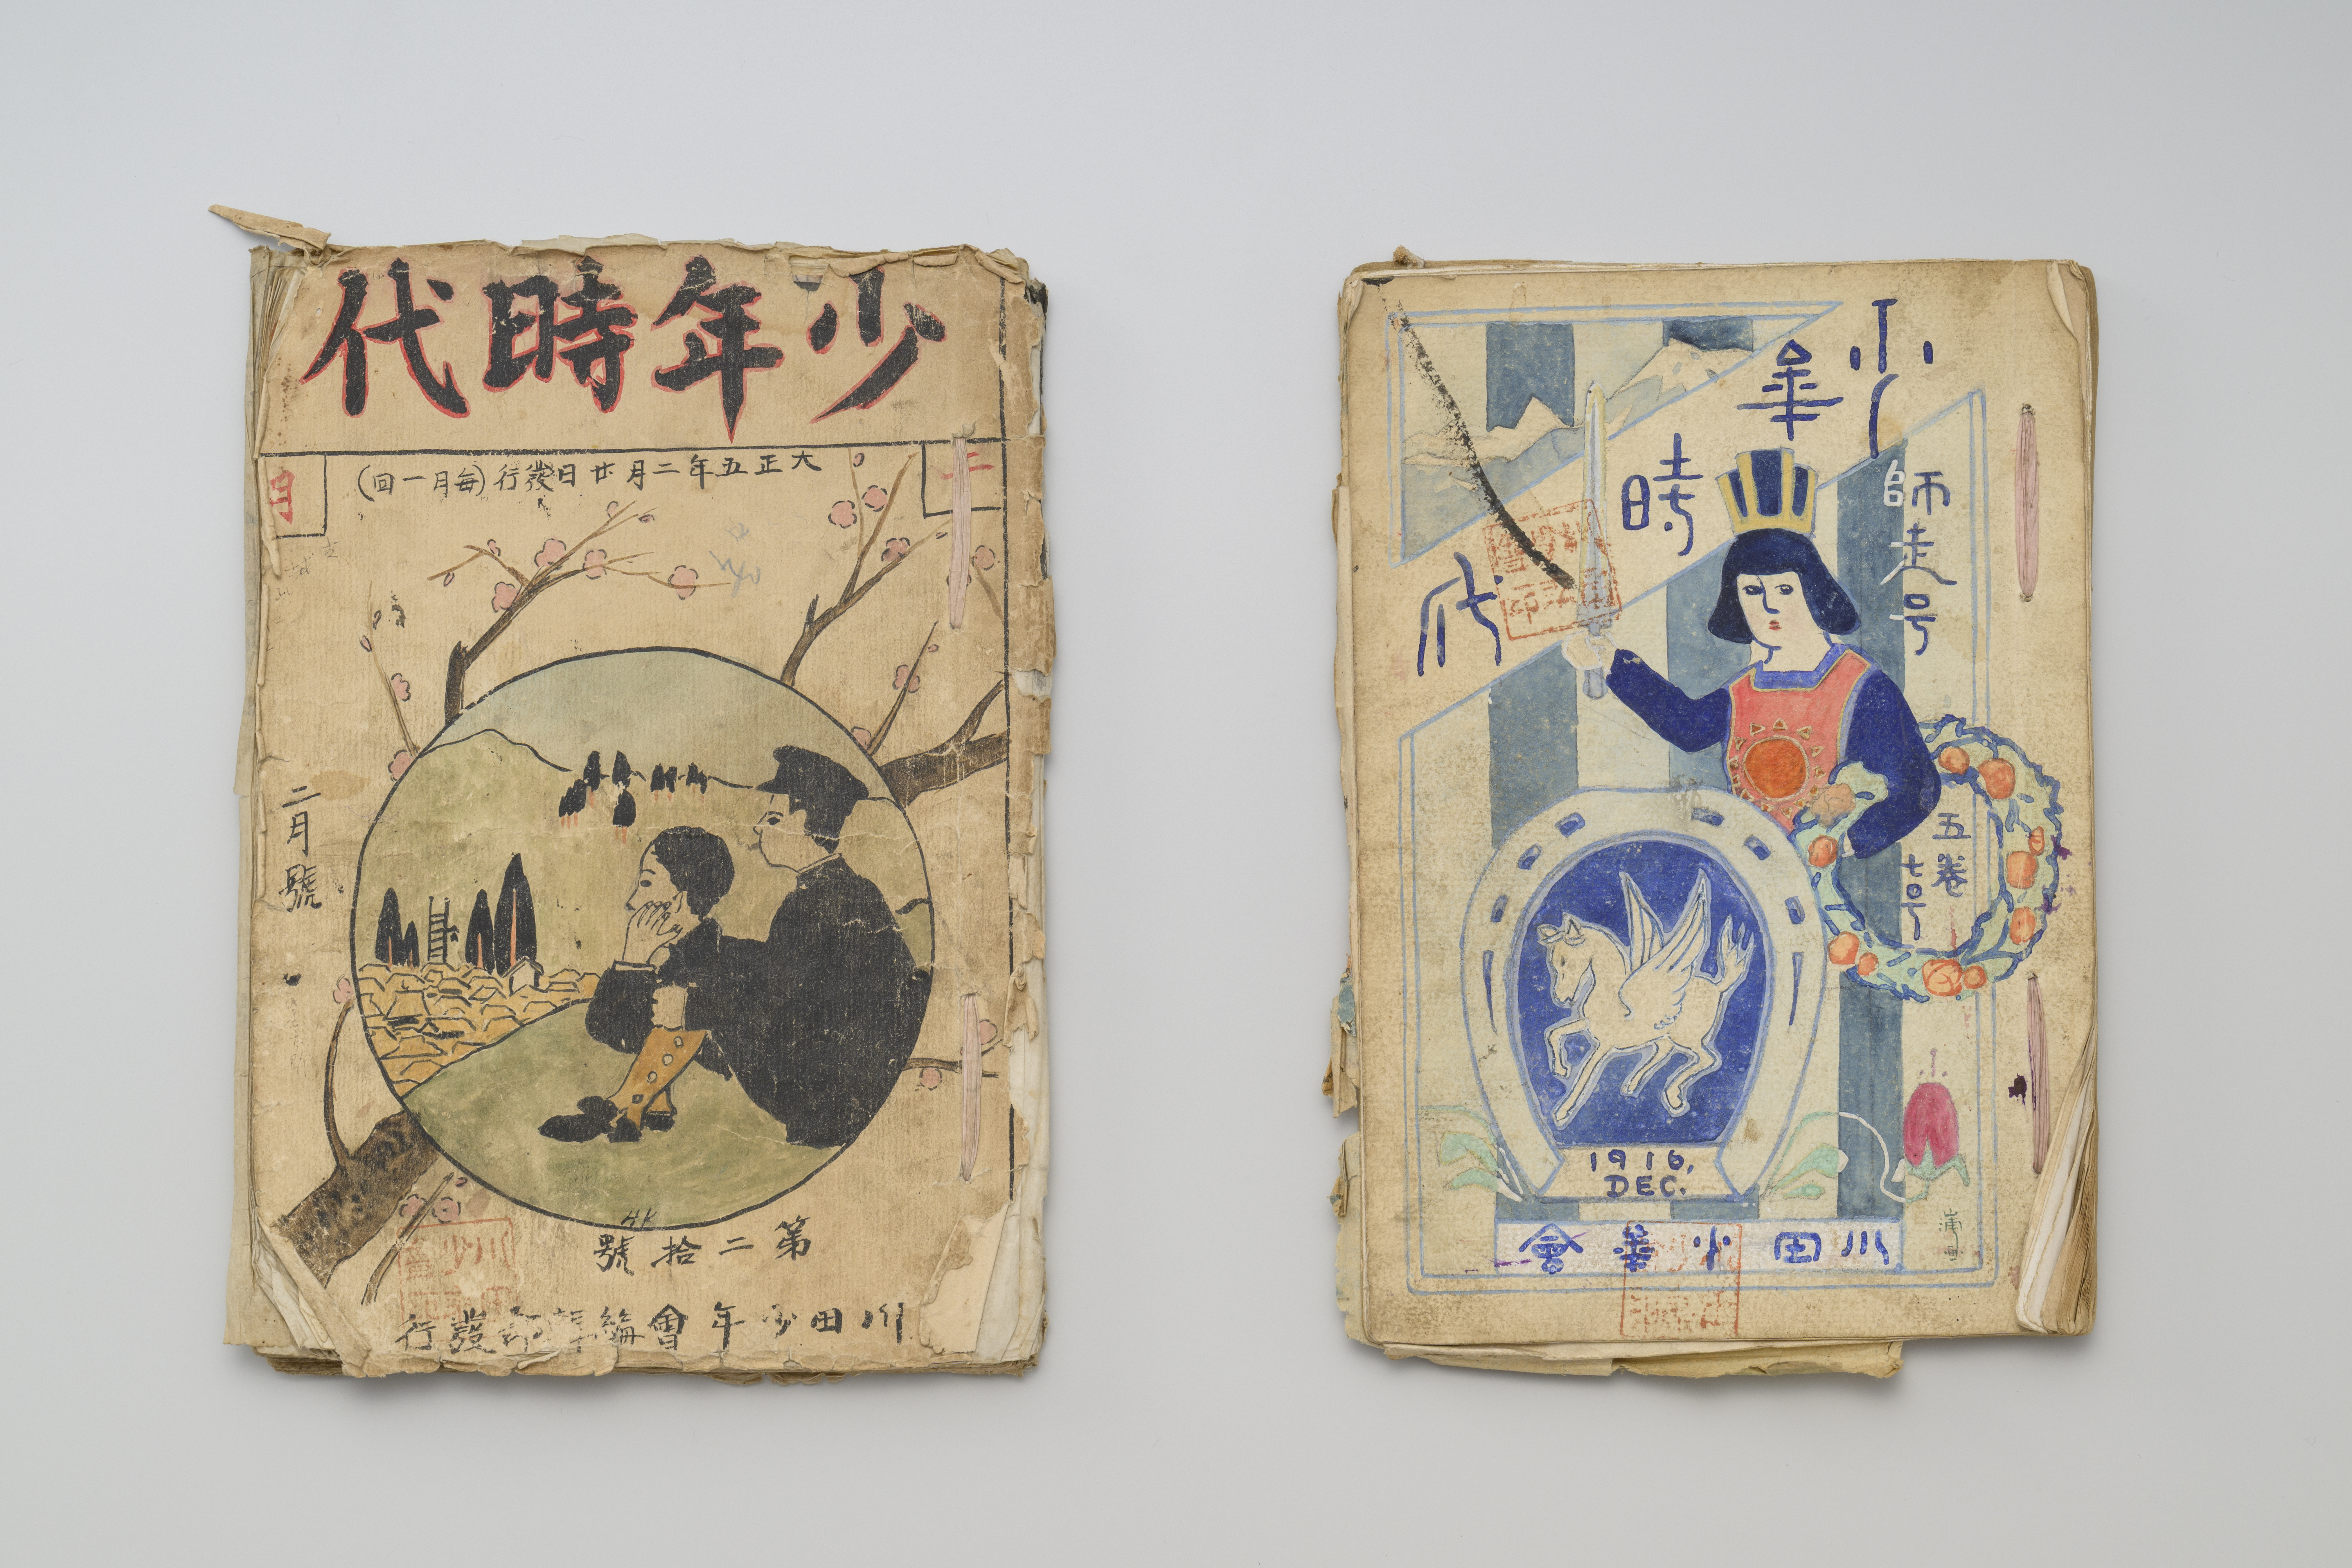 少年時代
二月
大正五年二月廿日發行(毎月一回)
二月號
HK
第二拾號
川田少年會編輯部發行
少年
時
代
師走号
五卷
七号
1916,
DEC.
川田少年會